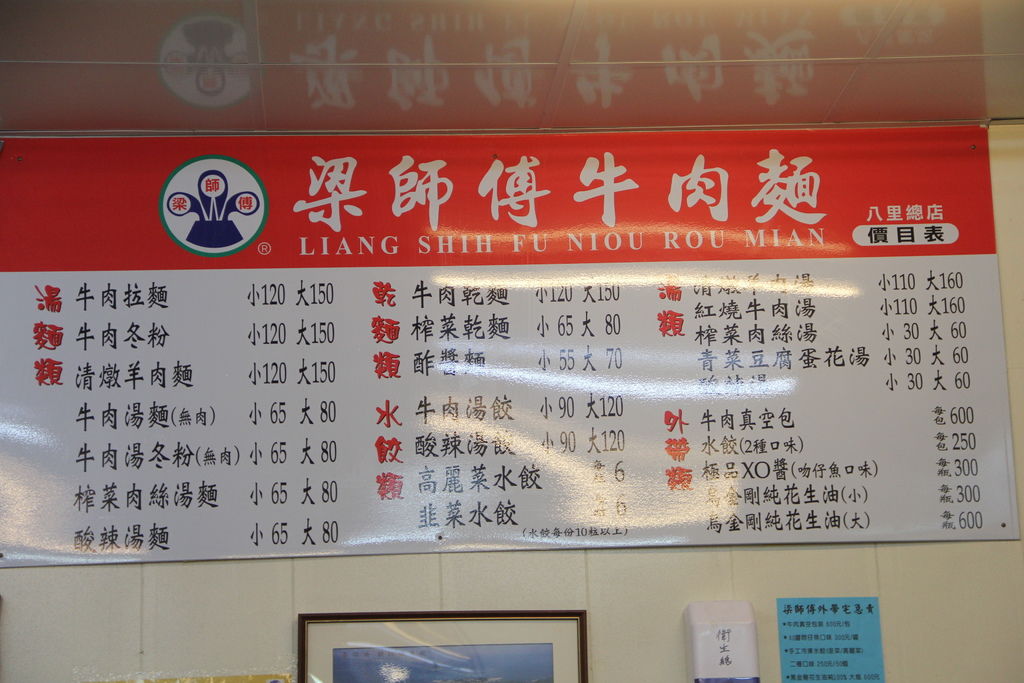 梁師傅牛肉麵
LIANG SHIH FU NIOU ROU MIAN
梁 師 傅
®
八里總店
價目表
湯麵類
牛肉拉麵 小120 大150
牛肉冬粉 小120 大150
清燉羊肉麵 小120 大150
牛肉湯麵(無肉) 小 65 大 80
牛肉湯冬粉(無肉) 小 65 大 80
榨菜肉絲湯麵 小 65 大 80
酸辣湯麵 小 65 大 80
乾麵類
牛肉乾麵 小120 大150
榨菜乾麵 小 65 大 80
酢醬麵 小 55 大 70
水餃類
牛肉湯餃 小 90 大120
酸辣湯餃 小 90 大120
高麗菜水餃 每 6
韭菜水餃
(水餃每份10粒以上)
湯類
清燉羊肉湯 小110 大160
紅燒牛肉湯 小110 大160
榨菜肉絲湯 小 30 大 60
青菜豆腐蛋花湯 小 30 大 60
酸辣湯 小 30 大 60
外帶類
牛肉真空包 每包600
水餃(2種口味) 每包250
極品XO醬(吻仔魚口味) 每瓶300
烏金剛純花生油(小) 每瓶300
烏金剛純花生油(大) 每瓶600
梁師傅外帶宅急
牛肉真空包裝 600元/包
二種口味 250元/50